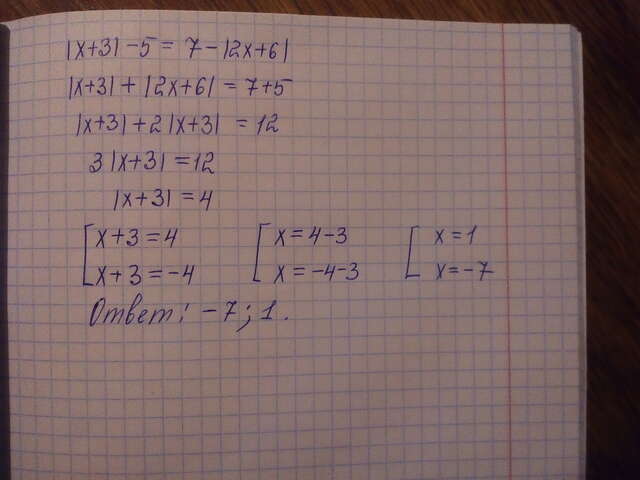 |x+3| - 5 = 7 - |2x+6|
|x+3| + |2x+6| = 7+5
|x+3| + 2|x+3| = 12
3|x+3| = 12
|x+3| = 4
[x+3=4 [x=4-3 [x=1
x+3=-4 x=-4-3 x=-7
Ответ: -7; 1.